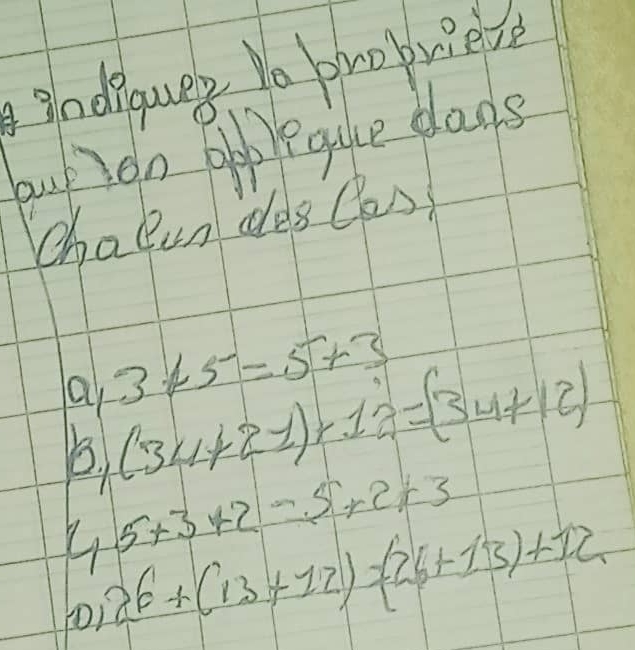 indiquez la propriété
que l'on applique dans
Chacun des Cas;
a, 3+5=5+3
b, (34+21)+12=(34+12)
5+3+2=5+2+3
D, 26+(13+12)=(26+13)+12